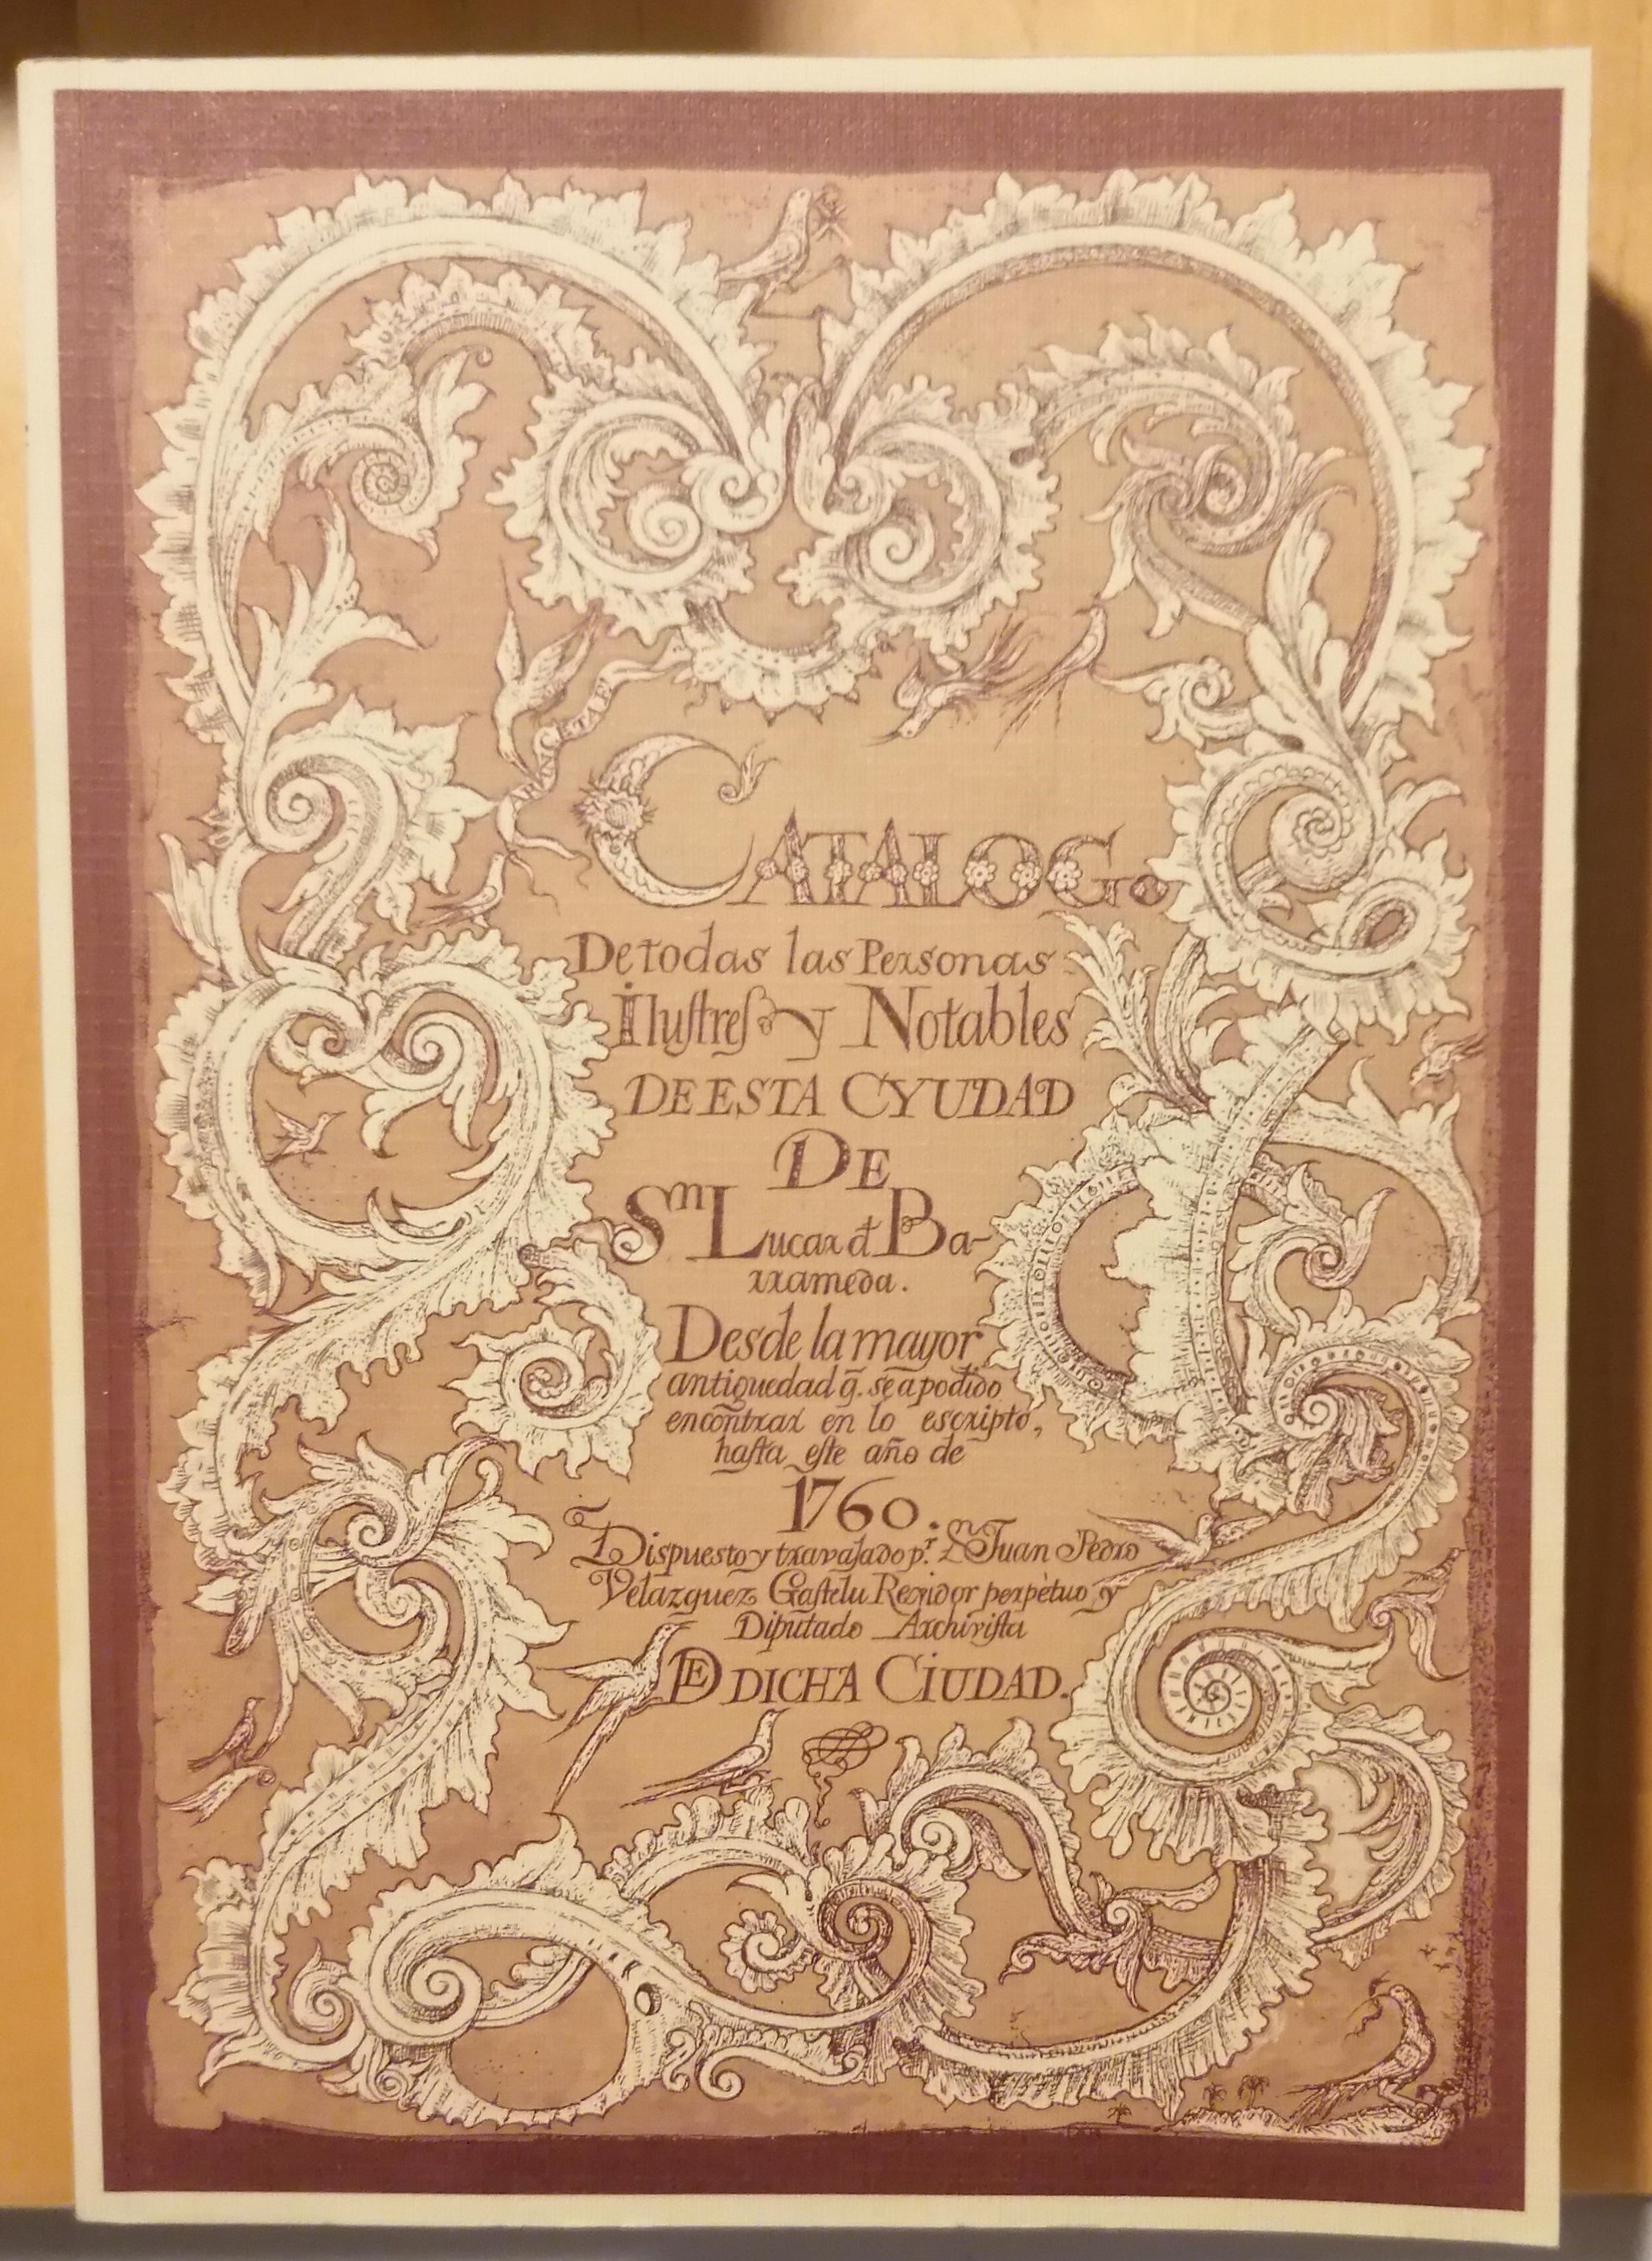 CATALOGo
De todas las Personas
Ilustres y Notables
DE ESTA CYUDAD
DE
Sn Lucar đ Ba-
rrameda.
Desde la mayor
antiguedad q̃. se a podido
encontrar en lo escripto,
hasta este año de
1760.
Dispuesto y travajado pr. Dn Juan Pedro
Velazquez Gastelu Regidor perpètuo y
Diputado Archivista
DE DICHA CIUDAD.